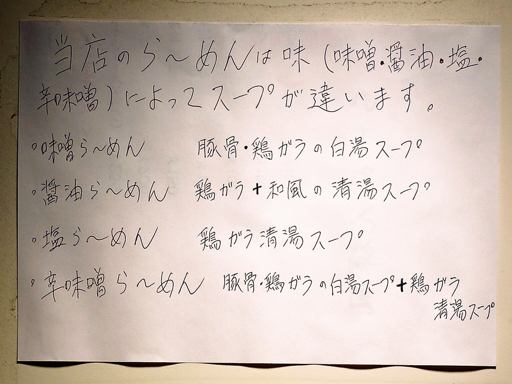 当店のら〜めんは味(味噌・醤油・塩・
辛味噌)によってスープが違います。
・味噌ら〜めん 豚骨・鶏ガラの白湯スープ
・醤油ら〜めん 鶏ガラ+和風の清湯スープ
・塩ら〜めん 鶏ガラ清湯スープ
・辛味噌ら〜めん 豚骨・鶏ガラの白湯スープ+鶏ガラ
清湯スープ